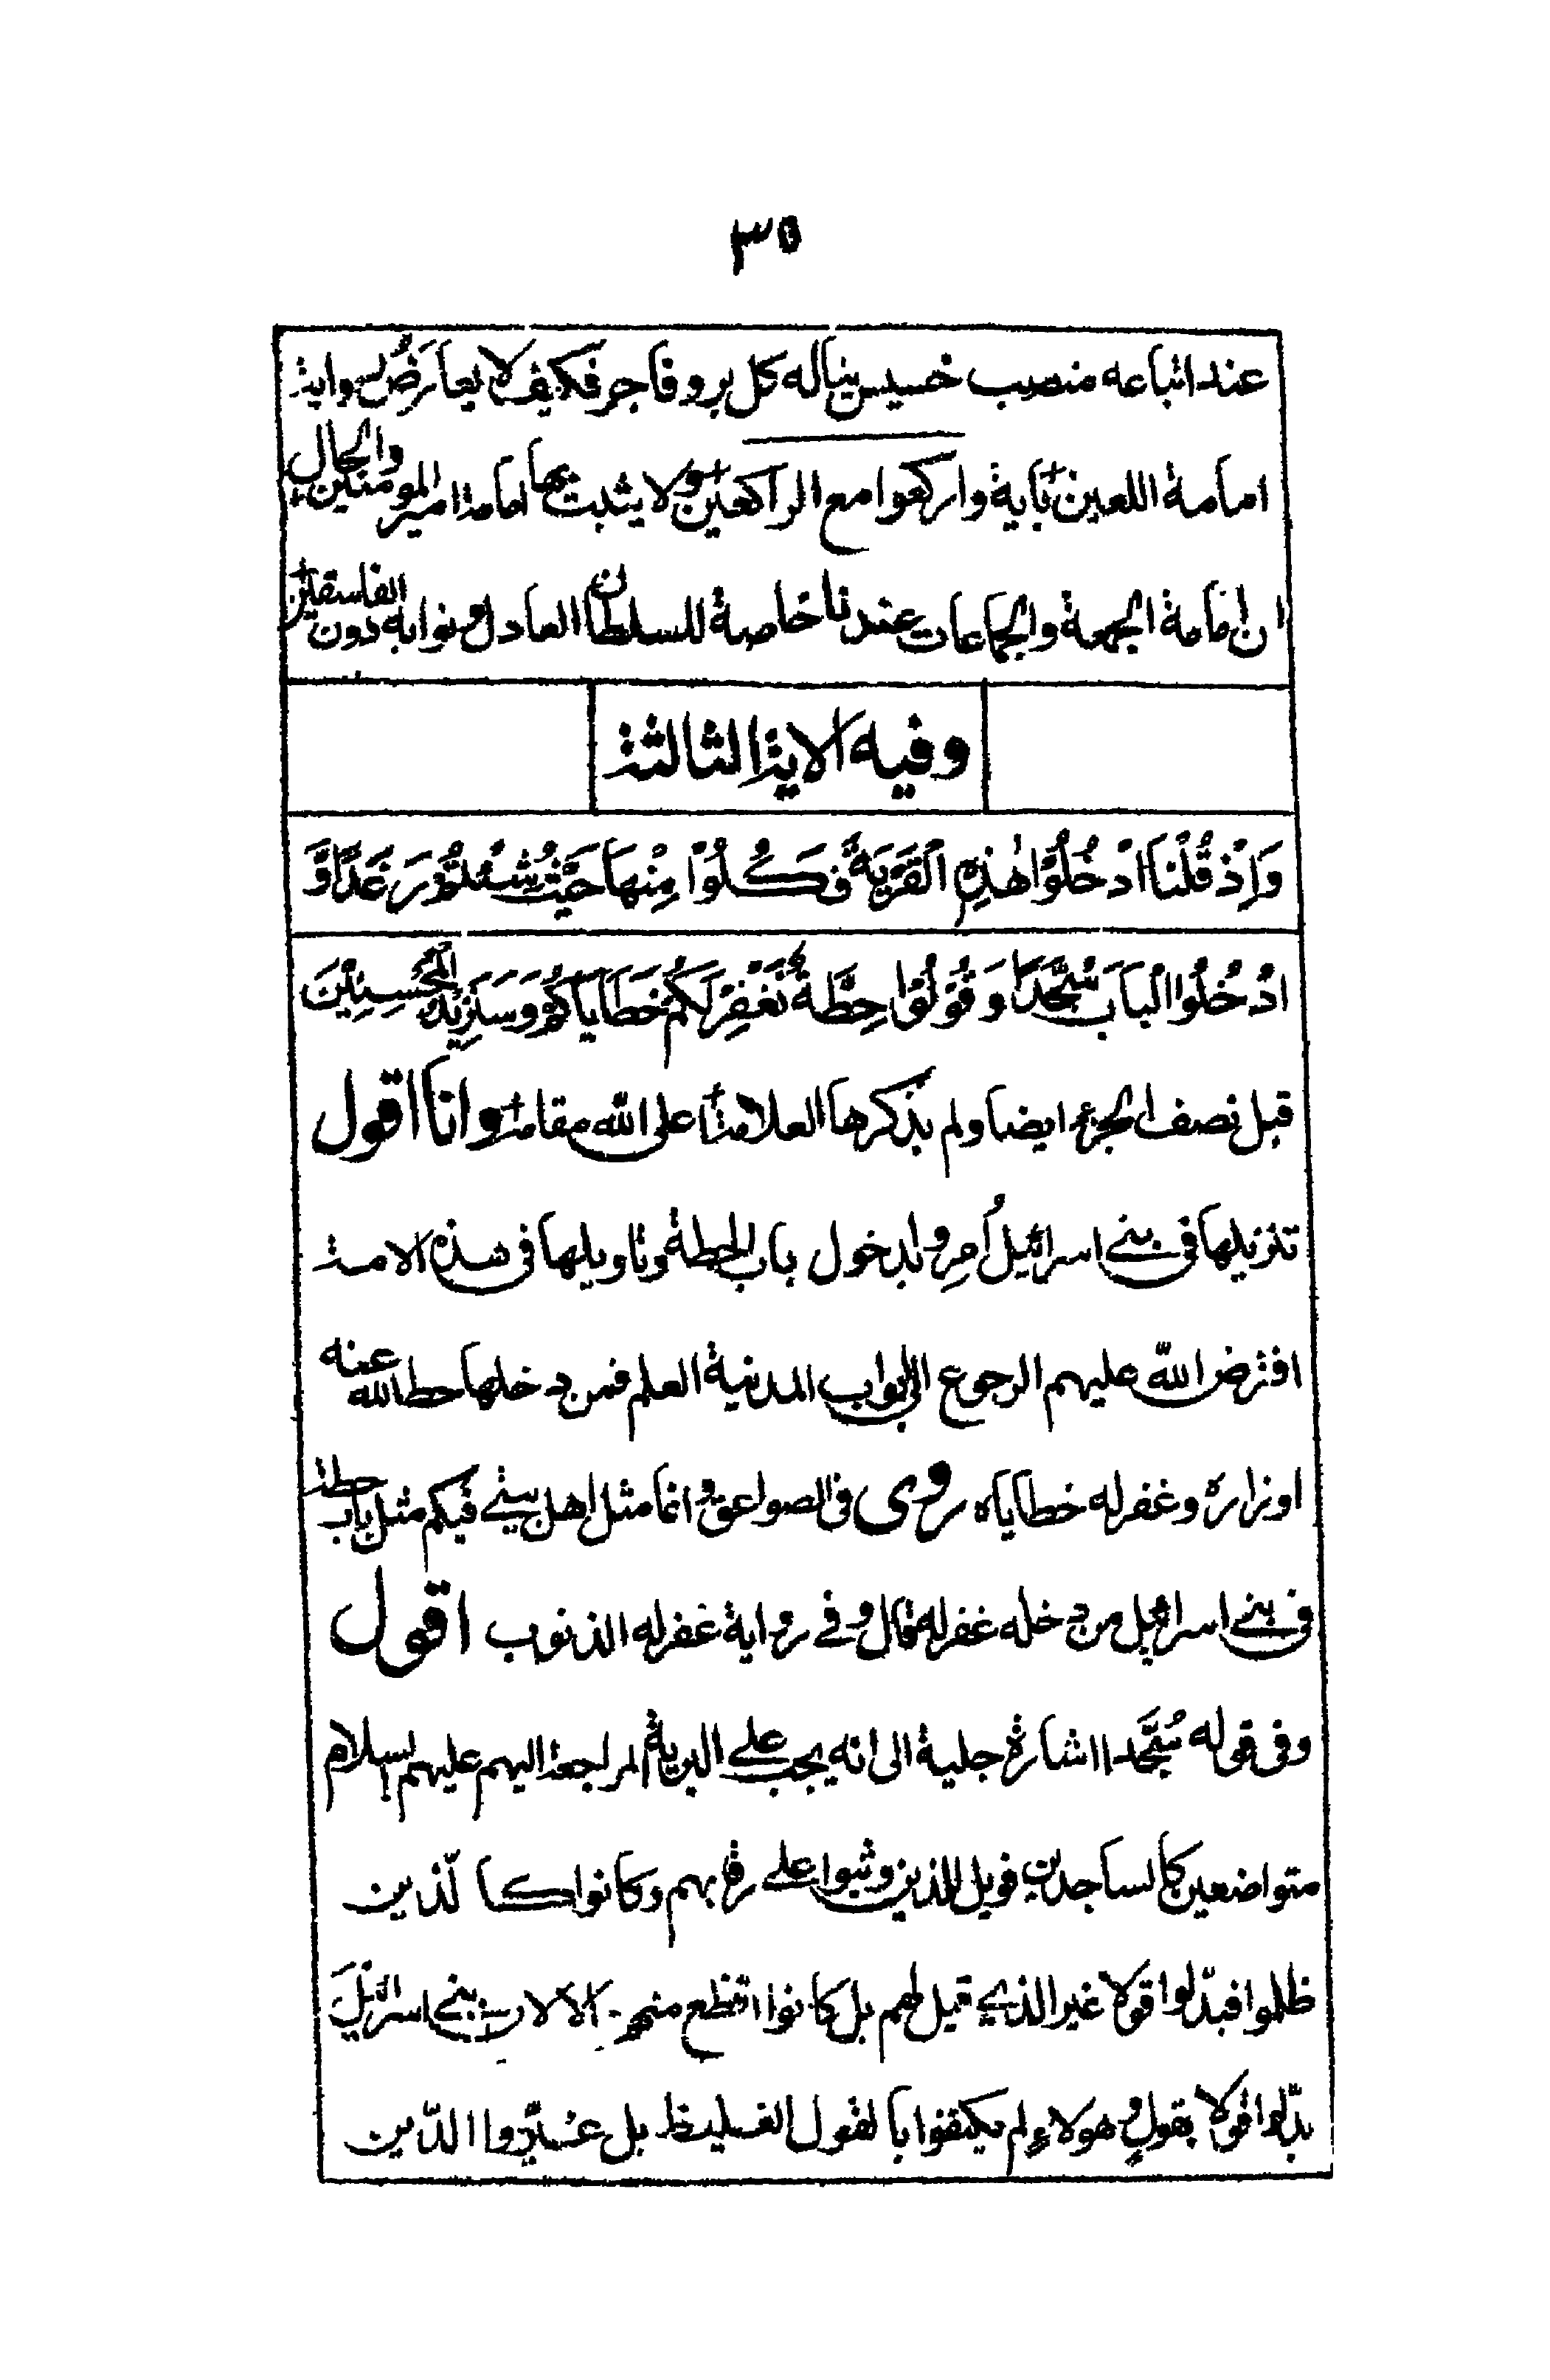 ٣٥
عند اتباعه منصب خسيس يناله كل بر وفاجر فكيف لا يعارض رواية
امامة اللعين بآية واركعوا مع الراكعين ولا يثبت بها امامة امير المومنين والحال
ان امامة الجمعة والجماعات عندنا خاصة للسلطان العادل ونوابه دون الفاسقين
وفيه الاية الثالثة
وَاِذْ قُلْنَا ادْخُلُوْا هٰذِهِ الْقَرْيَةَ فَكُلُوْا مِنْهَا حَيْثُ شِئْتُمْ رَغَدًا وَّ
ادْخُلُوا الْبَابَ سُجَّدًا وَقُوْلُوْا حِطَّةٌ نَغْفِرْ لَكُمْ خَطَايَاكُمْ وَسَنَزِيْدُ الْمُحْسِنِيْنَ
قبل نصف الجزء ايضا ولم يذكرها العلامة اعلى الله مقامه وانا اقول
تنزيلها فى بنے اسرائيل اُمِروا بدخول باب الحطة وتاويلها فى هذه الامة
افترض الله عليهم الرجوع الى ابواب المدنية العلم فمن دخلها حط الله عنه
اوزاره وغفر له خطاياه روى فى الصواعق وانما مثل اهل بيتے فيكم مثل باب حطة
فى بنے اسرائيل من دخله غفر له قال وفے رواية غفر له الذنوب اقول
وفى قوله سُجَّدا اشارة جلية الى انه يجب علے البرية المراجعة اليهم عليهم السلام
متواضعين كالساجدين فويل للذين وثبوا علے رقابهم وكانوا كالذين
ظلموا فبدّلوا قولا غير الذے قيل لهم بل كانوا افظع منهم الا لان بنے اسرائيل
بدّلوا قولا بقولٍ وهولاءِ لم يكتفوا بالقول الغليظ بل غيّروا الدّين